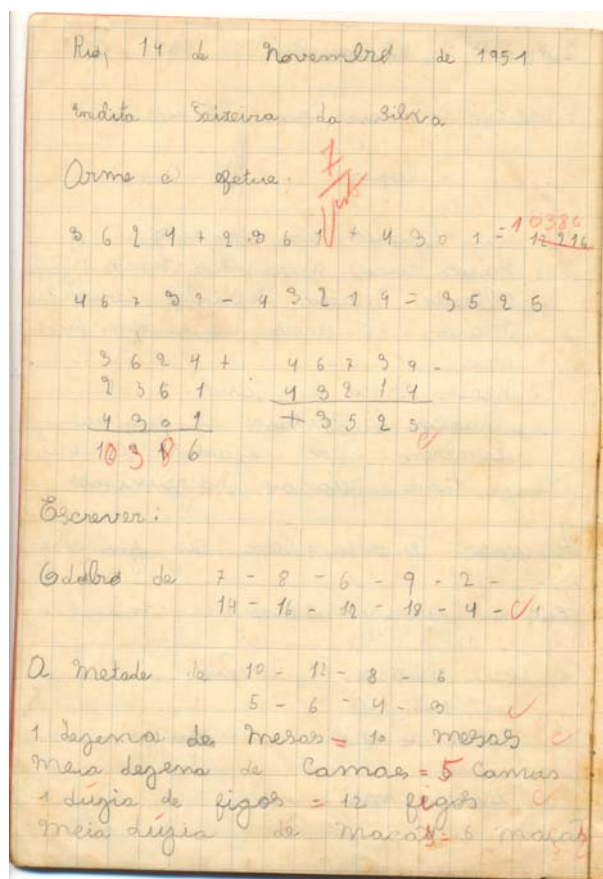 Rio, 14 de Novembro de 1951
Indita Teixeira da Silva
Arme e efetue:
3624 + 2361 + 4301 = 12216 10386
46739 - 43214 = 3525
3624 + 46739 -
2361 43214
4301 + 3525
10386
Escrever:
O dobro de 7 - 8 - 6 - 9 - 2 -
14 - 16 - 12 - 18 - 4 -
A metade de 10 - 12 - 8 - 6
5 - 6 - 4 - 3
1 dezena de mesas = 10 mesas
meia dezena de camas = 5 camas
1 dúzia de figos = 12 figos
meia dúzia de maçãs = 6 maçãs